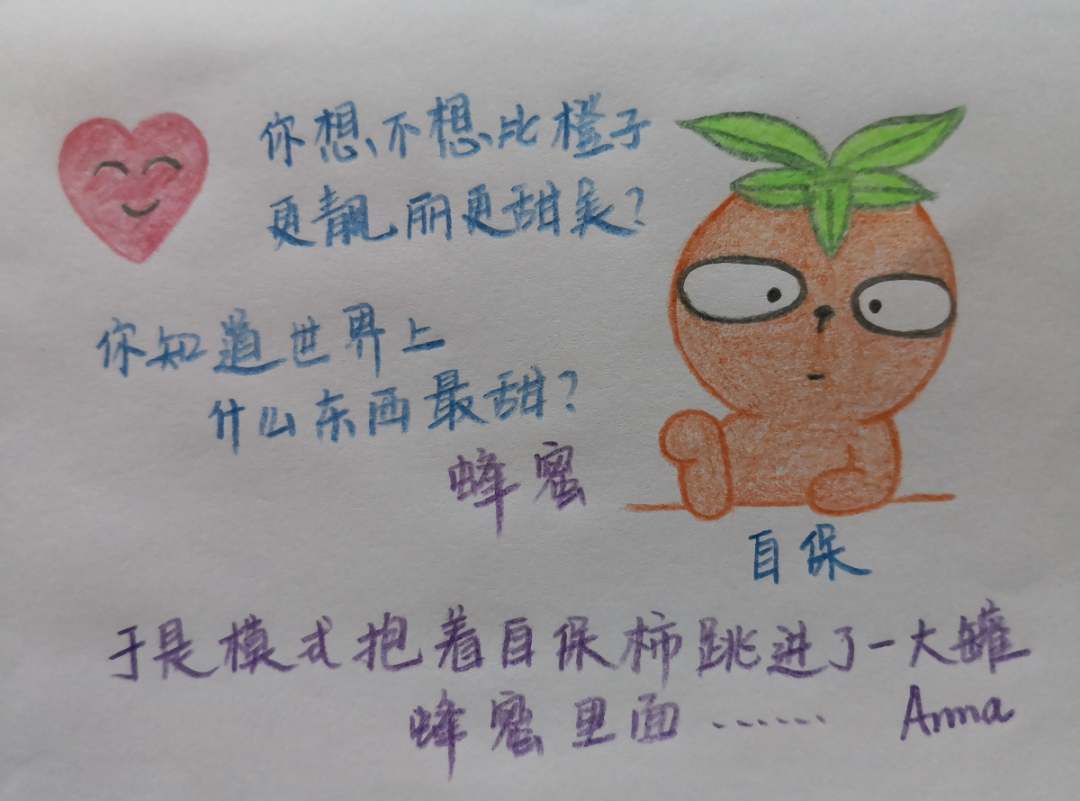 你想不想比橙子
更靓丽更甜美?
你知道世界上
什么东西最甜?
蜂蜜
自保
于是模式抱着自保柿跳进了一大罐
蜂蜜里面…… Anna